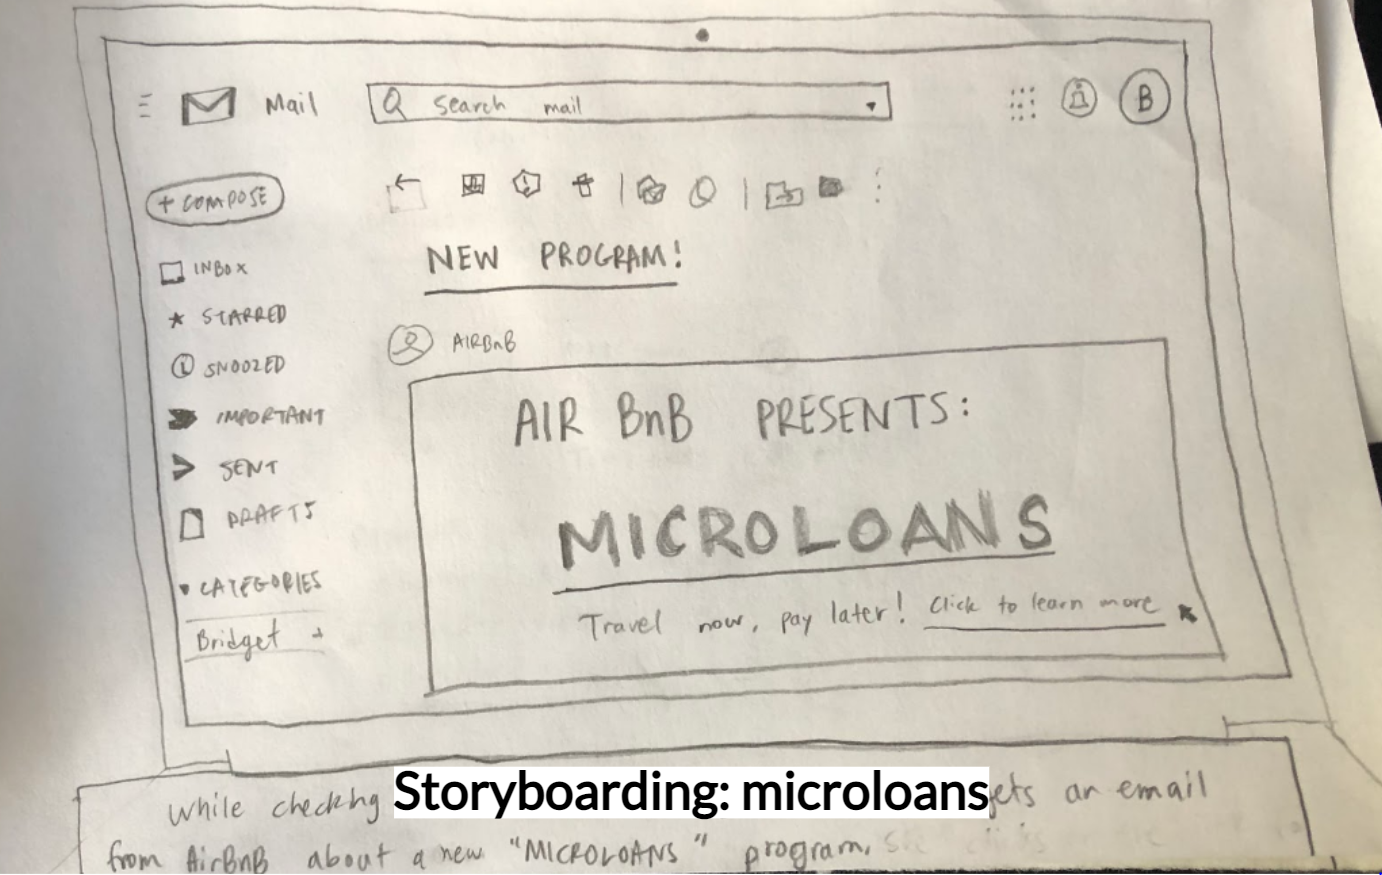 Mail
Search mail
B
+ COMPOSE
INBOX
STARRED
SNOOZED
IMPORTANT
SENT
DRAFTS
CATEGORIES
Bridget +
NEW PROGRAM!
AIRBnB
AIR BnB PRESENTS:
MICROLOANS
Travel now, pay later! Click to learn more
While checking
Storyboarding: microloans
gets an email
from AirBnB about a new "MICROLOANS" program.